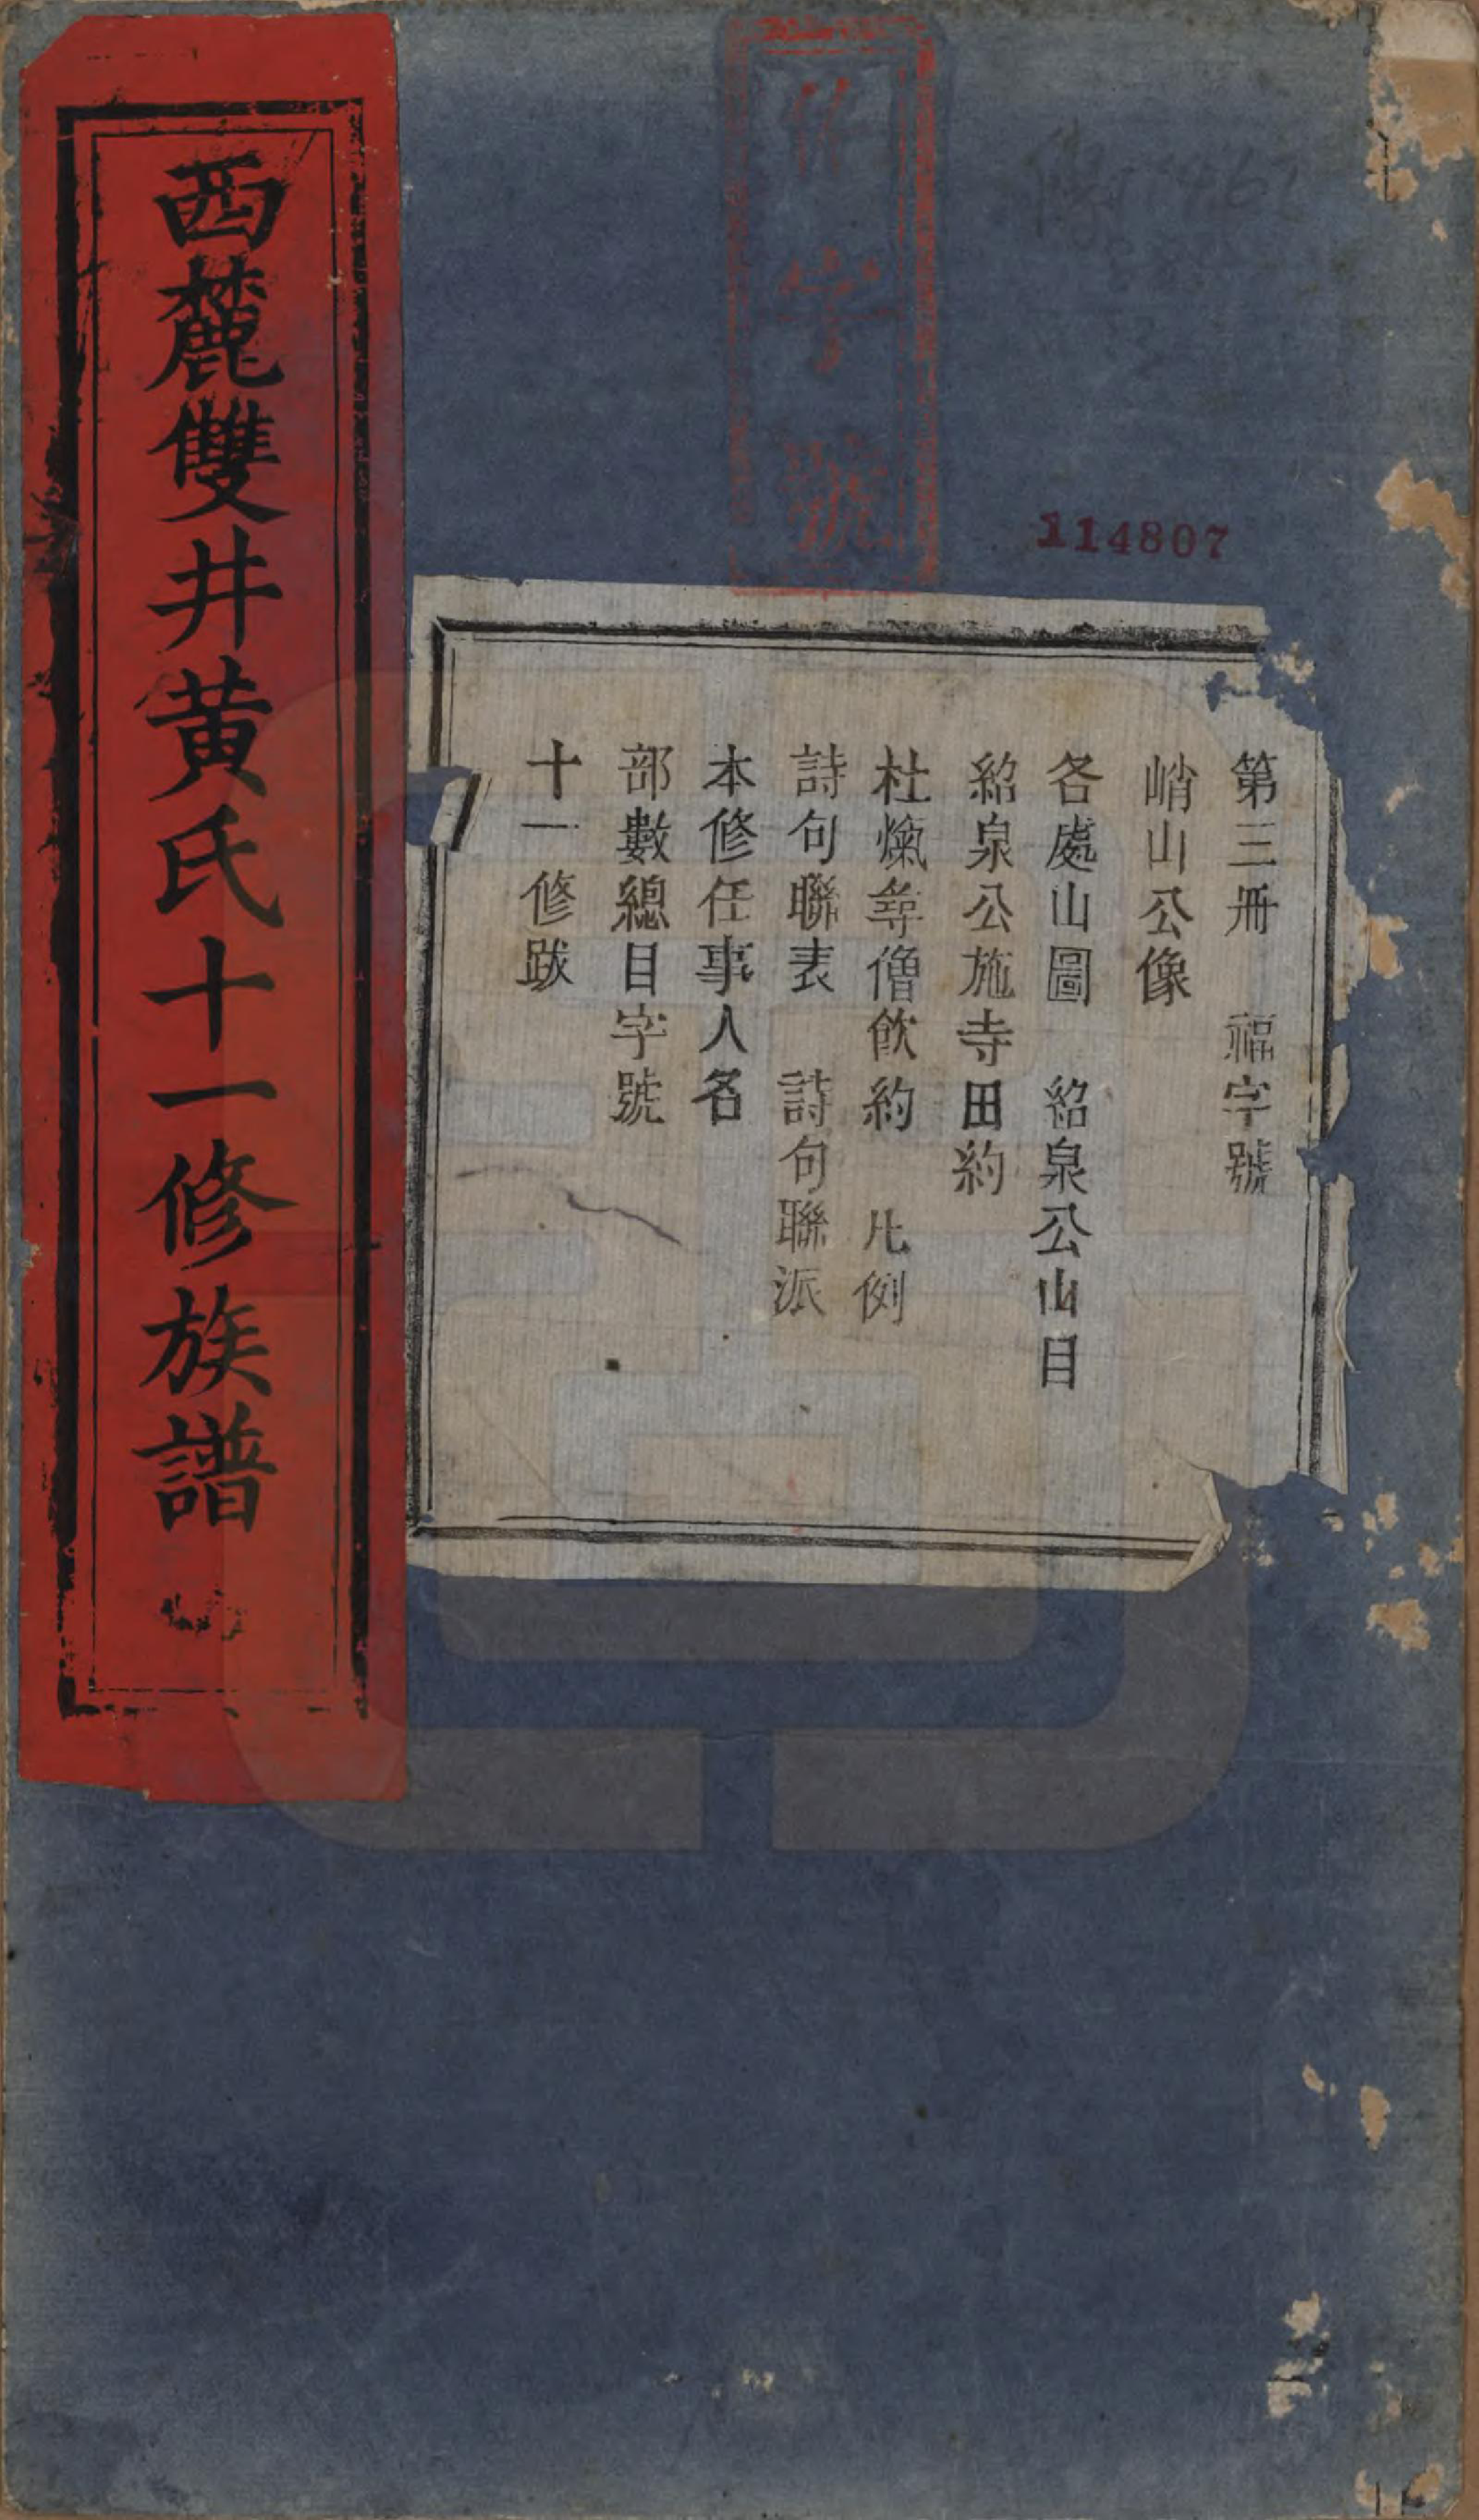 西麓雙井黃氏十一修族譜
字
號
114807
第三冊　福字號
峭山公像
各處山圖　紹泉公山目
紹泉公施寺田約
杜煙尋僧飲約　凡例
詩句聯表　詩句聯派
本修任事人名
部數總目字號
十一修跋